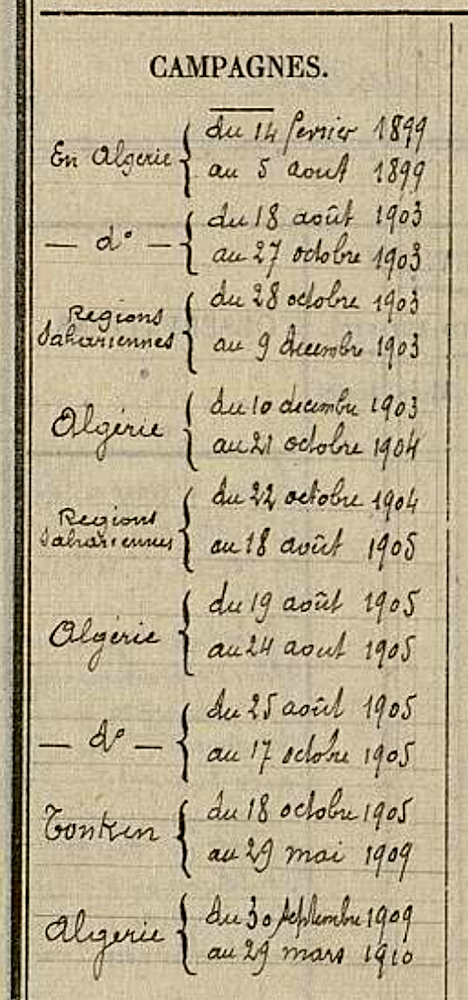 CAMPAGNES.
En Algerie { du 14 fevrier 1899
au 5 aout 1899
— do — { du 18 août 1903
au 27 octobre 1903
Regions
Sahariennes { du 28 octobre 1903
au 9 decembre 1903
Algérie { du 10 decembre 1903
au 21 octobre 1904
Regions
Sahariennes { du 22 octobre 1904
au 18 août 1905
Algérie { du 19 août 1905
au 24 aout 1905
— do — { du 25 août 1905
au 17 octobre 1905
Tonkin { du 18 octobre 1905
au 29 mai 1909
Algerie { du 30 septembre 1909
au 29 mars 1910